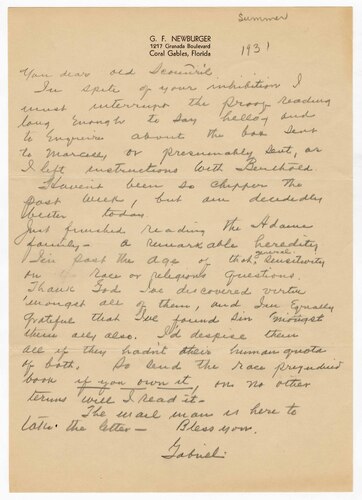 Summer
1931
G. F. NEWBURGER
1217 Granada Boulevard
Coral Gables, Florida
You dear old Scoundril.
In spite of your inhibition I
must interrupt the proof reading
long enough to say hello, and
to enquire about the box sent
to Marcella, or presumably sent, as
I left instructions with Berthold.
Havent been so chipper the
past week, but am decidedly
better today.
Just finished reading the Adams
family - a remarkable heredity
I'm past the age of that general sensitivity
on race or religious questions.
Thank God I've discovered virtue
'mongst all of them, and I'm equally
grateful that I've found sin 'mongst
them all, also. I'd despise them
all if they hadn't their human quota
of both. So send the race prejudice
book if you own it, on no other
terms will I read it -
The mail man is here to
take the letter - Bless you.
Gabriel.